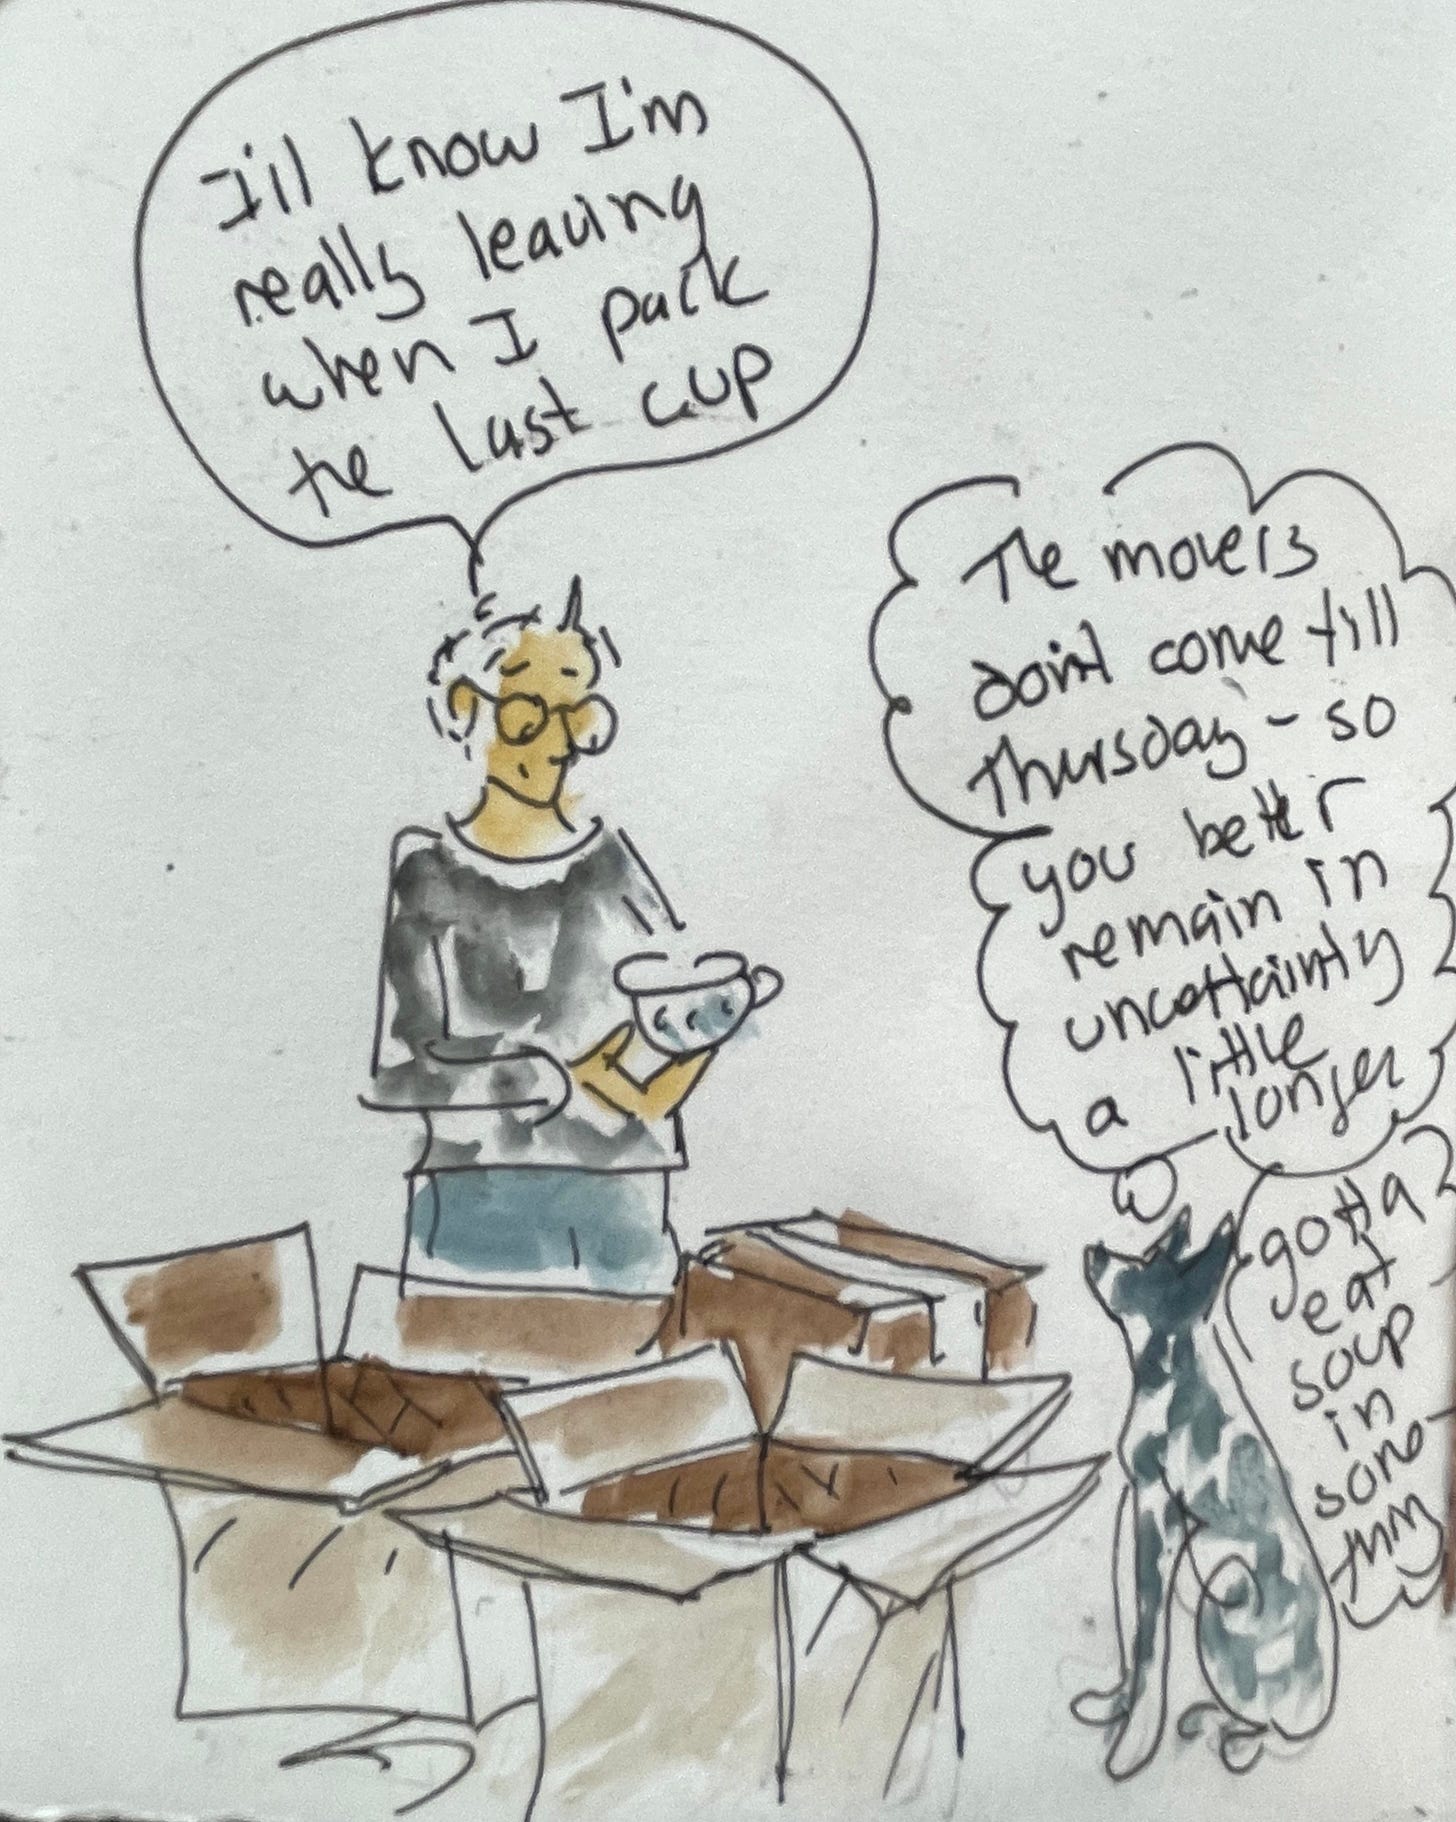 I'll know I'm
really leaving
when I pack
the last cup
The movers
don't come till
Thursday - so
you better
remain in
uncertainty
a little
longer
gotta
eat
soup
in
some-
thing